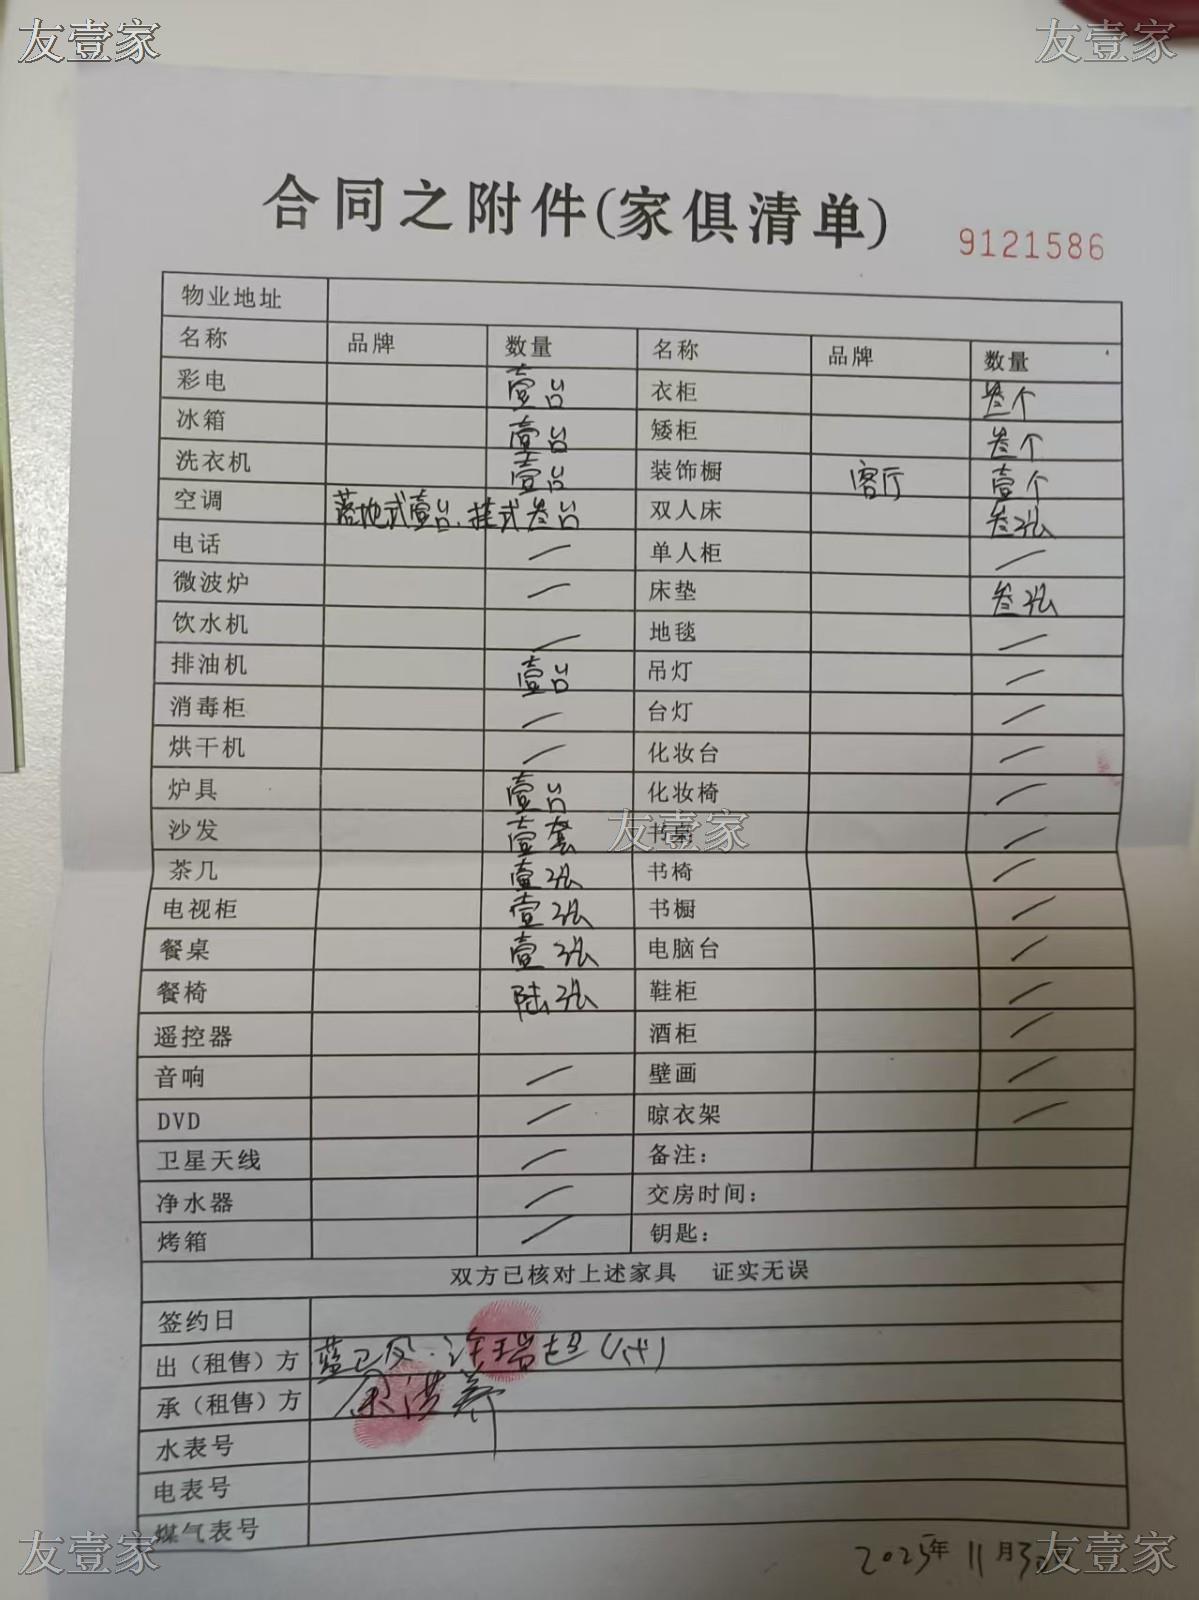 友壹家 友壹家
合同之附件(家俱清单) 9121586
物业地址
名称 品牌 数量 名称 品牌 数量
彩电 壹台 衣柜 叁个
冰箱 壹台 矮柜 叁个
洗衣机 壹台 装饰橱 客厅 壹个
空调 落地式壹台.挂式叁台 双人床 叁张
电话 单人柜
微波炉 床垫 叁张
饮水机 地毯
排油机 壹台 吊灯
消毒柜 台灯
烘干机 化妆台
炉具 壹台 化妆椅
沙发 壹套 友壹家 书桌
茶几 壹张 书椅
电视柜 壹张 书橱
餐桌 壹张 电脑台
餐椅 陆张 鞋柜
遥控器 酒柜
音响 壁画
DVD 晾衣架
卫星天线 备注：
净水器 交房时间：
烤箱 钥匙：
双方已核对上述家具 证实无误
签约日
出（租售）方 (代)
承（租售）方
水表号
电表号
煤气表号
友壹家 2025年11月 友壹家